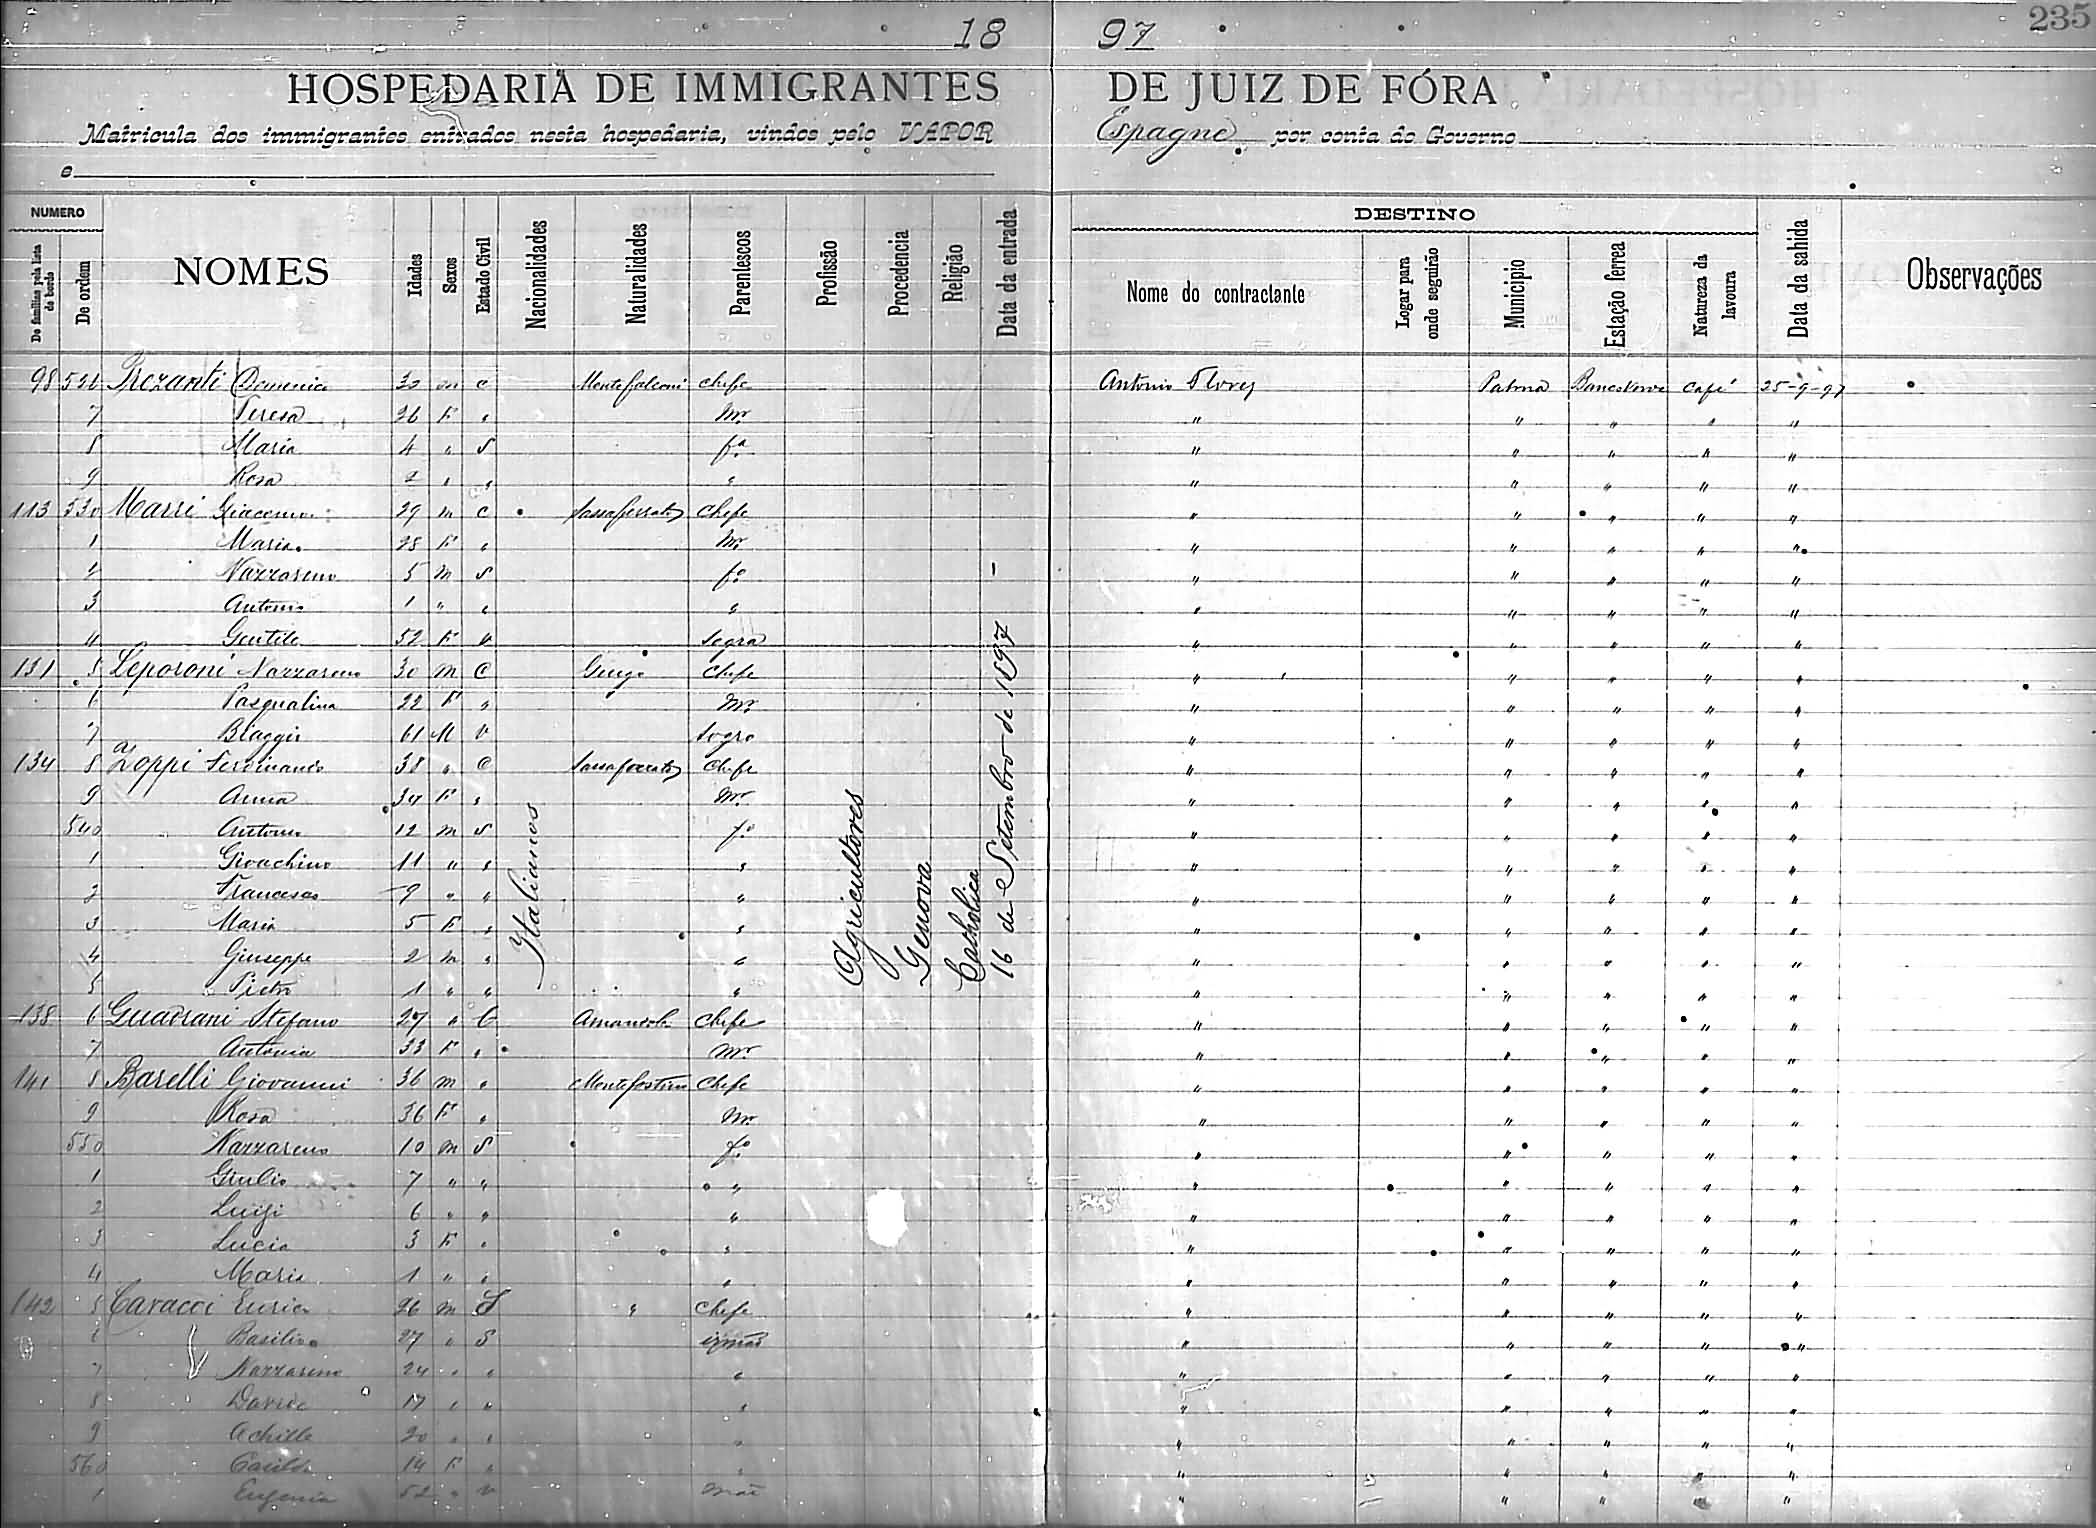 235
18 97
HOSPEDARIA DE IMMIGRANTES DE JUIZ DE FÓRA
Matricula dos immigrantes entrados nesta hospedaria, vindos pelo VAPOR Espagne por conta do Governo
e
NUMERO DESTINO
De familias pela lista de bordo De ordem NOMES Idades Sexos Estado Civil Nacionalidades Naturalidades Parentescos Profissão Procedencia Religião Data da entrada Nome do contractante Logar para onde seguirão Municipio Estação ferrea Natureza da lavoura Data da sahida Observações
98 526 30 m c Chefe Antonio Flores Palma café 25-9-97
7 Teresa 26 F " Mr. " " " " "
8 Maria 4 " S fa. " " " " "
9 Rosa 2 " " " " " " " "
113 530 Marri Giacomo 29 m C Sassaferrato Chefe " " " " "
1 Maria 28 F " Mr. " " " " "
2 Nazzareno 5 m S fo. " " " " "
3 Antonio 1 " " " " " " " "
4 Gentile 52 F V Sogra " " " " "
131 5 Leporoni Nazzareno 30 m C Chefe " " " " "
6 Pasqualina 22 F " Mr. " " " " "
7 Biaggio 61 M V Sogro " " " " "
134 8 Zoppi Ferdinando 38 " C Sassaferrato Chefe " " " " "
9 Anna 34 F " Mr. " " " " "
540 Antonio 12 m S fo. " " " " "
1 Gioachino 11 " " " " " " " "
2 Francesco 9 " " " " " " " "
3 Maria 5 F " " " " " " "
4 Giuseppe 2 m " " " " " " "
5 Pietro 1 " " " " " " " "
138 6 Guadrani Stefano 27 " C Amandola Chefe " " " " "
7 Antonia 33 F " Mr. " " " " "
141 8 Barelli Giovanni 36 m " Chefe " " " " "
9 Rosa 36 F " Mr. " " " " "
550 Nazzareno 10 m S fo. " " " " "
1 Giulio 7 " " " " " " " "
2 Luigi 6 " " " " " " " "
3 Lucia 3 F " " " " " " "
4 Maria 1 " " " " " " " "
142 5 Caracci 26 m S " Chefe " " " " "
6 Basilio 27 " S irmão " " " " "
7 Nazzareno 24 " " " " " " " "
8 Davide 17 " " " " " " " "
9 Achille 20 " " " " " " " "
560 14 F " " " " " " "
1 Eugenia 52 " V mãe " " " " "
Italianos
Agricultores
Genova
Catholica
16 de Setembro de 1897